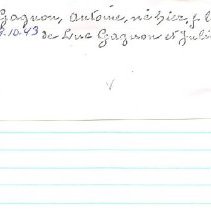 Gagnon, Antoine, né hier, f. l
.10.43 de Luc Gagnon et Juli